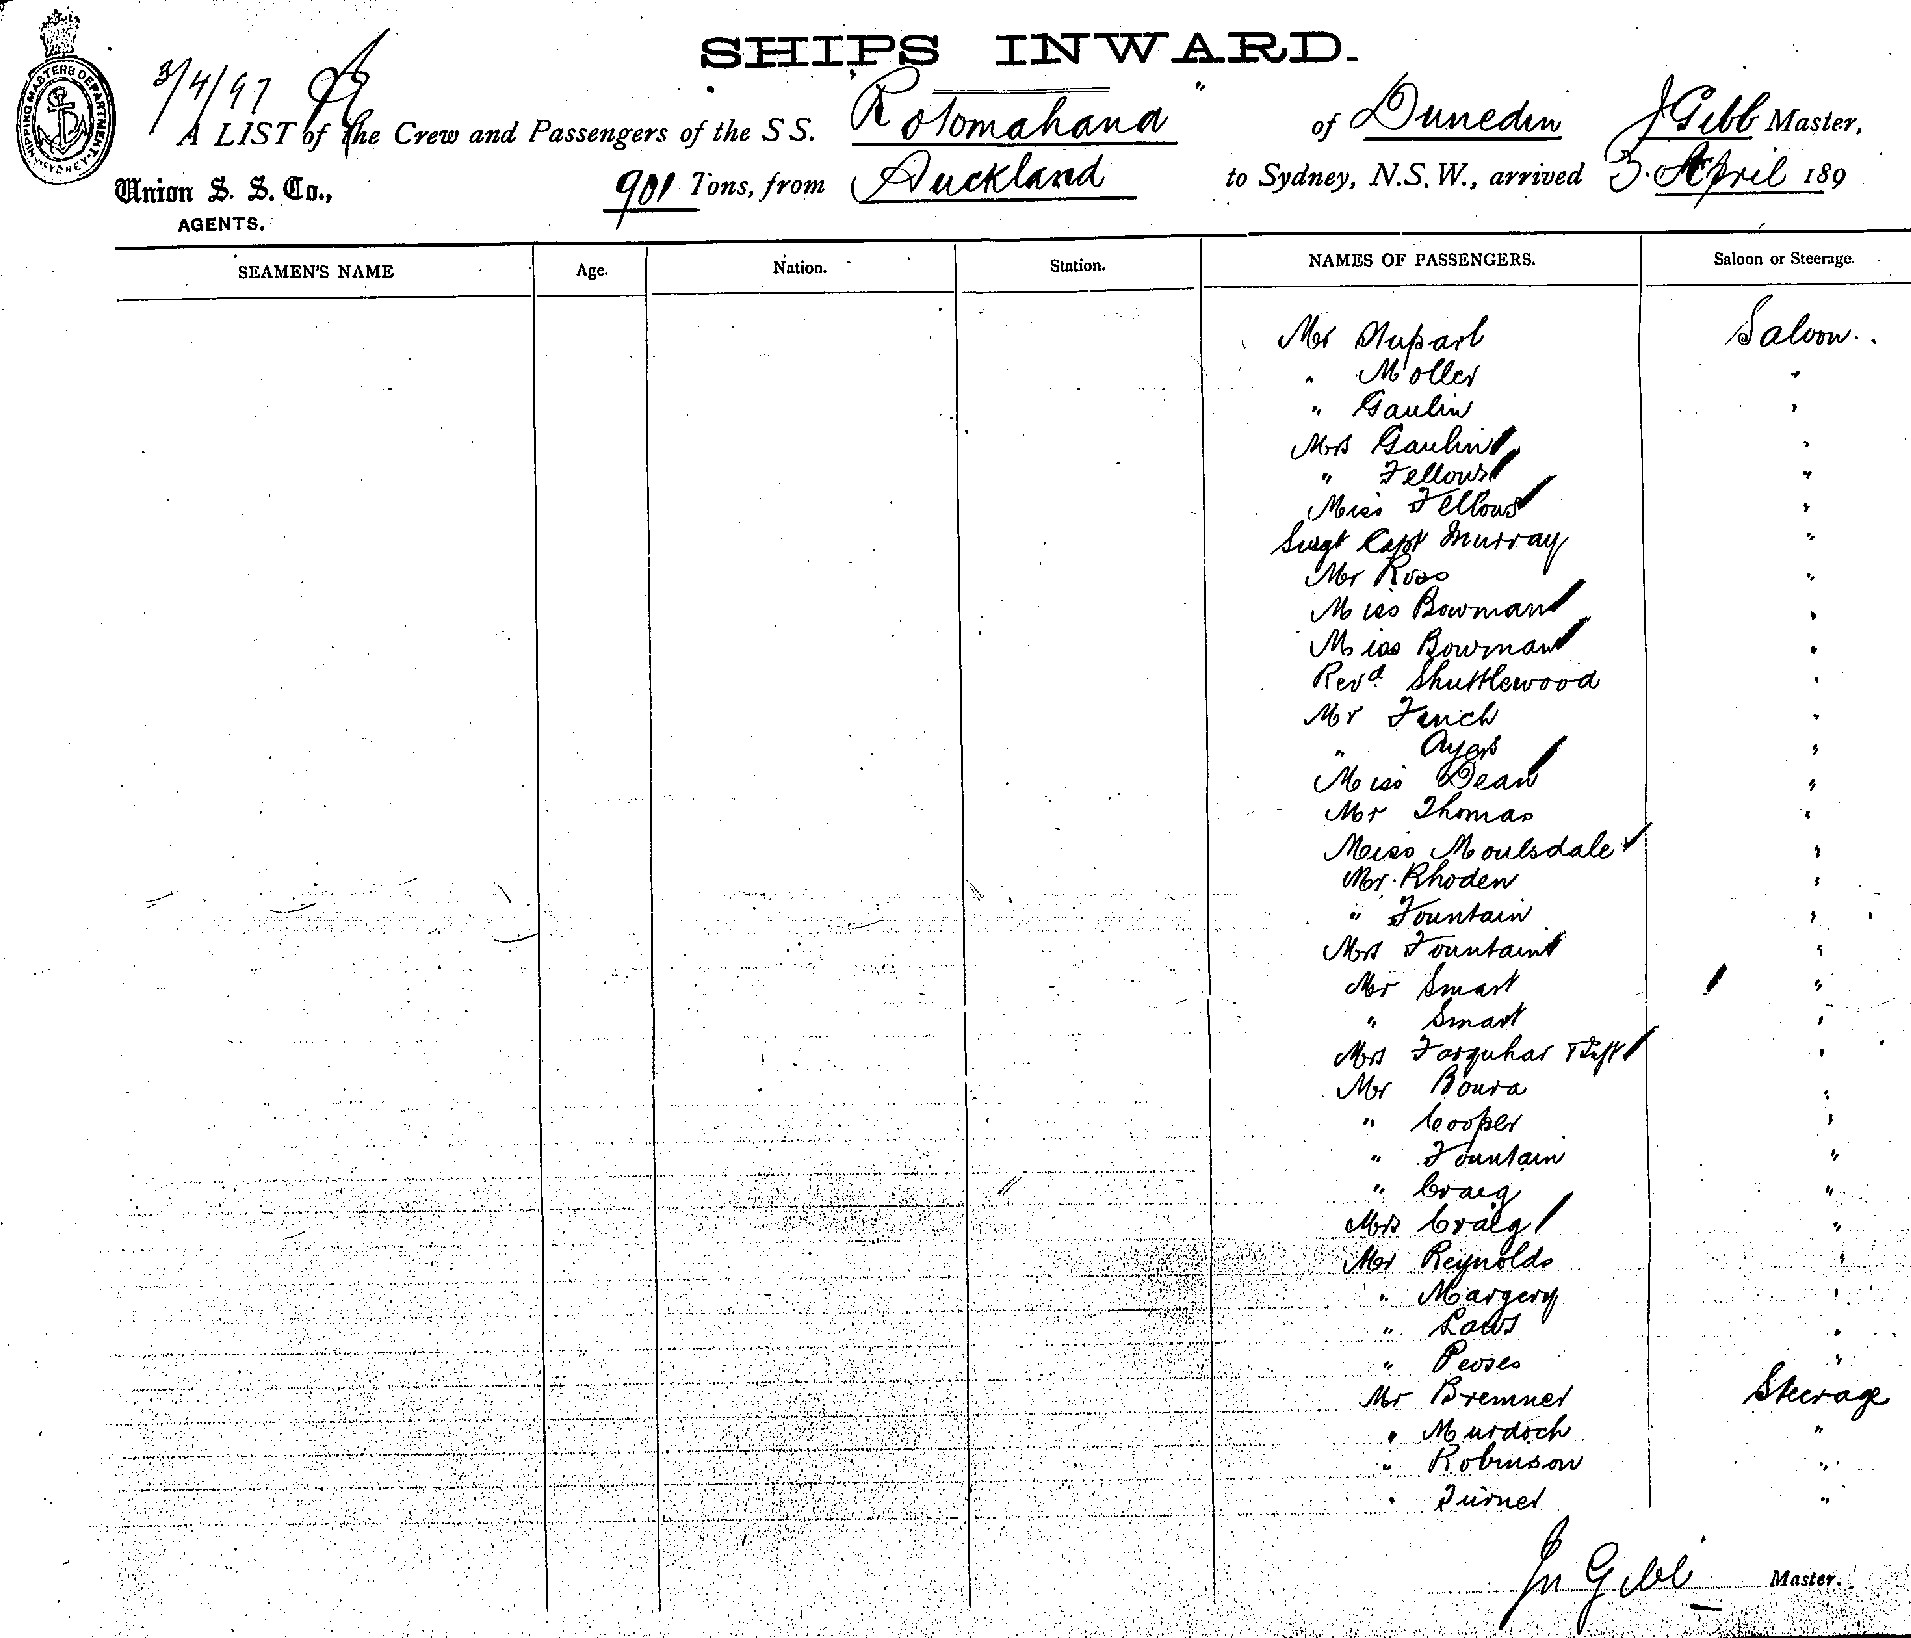 SHIPS INWARD.
3/4/97
A LIST of the Crew and Passengers of the S S. Rotomahana of Dunedin J Gibb Master,
Union S. S. Co., 901 Tons, from Auckland to Sydney, N.S.W., arrived 3. April 189
AGENTS.
SEAMEN'S NAME Age. Nation. Station. NAMES OF PASSENGERS. Saloon or Steerage.
Mr Saloon.
" Moller "
" Gaulin "
Mrs Gaulin "
" Fellows "
Miss Fellows "
Surgt Capt Murray "
Mr Ross "
Miss Bowman "
Miss Bowman "
Revd. Shuttlewood "
Mr Finch "
" Ayers "
Miss Dean "
Mr Thomas "
Miss Moulsdale "
Mr Rhoden "
" Fountain "
Mrs Fountain "
Mr Smart "
" Smart "
Mrs Farquhar "
Mr Boura "
" Cooper "
" Fountain "
" Craig "
Mrs Craig "
Mr Reynolds "
" Margery "
" Laws "
" "
Mr Bremner Steerage
" Murdoch "
" Robinson "
" Turner "
Jn Gibb Master.